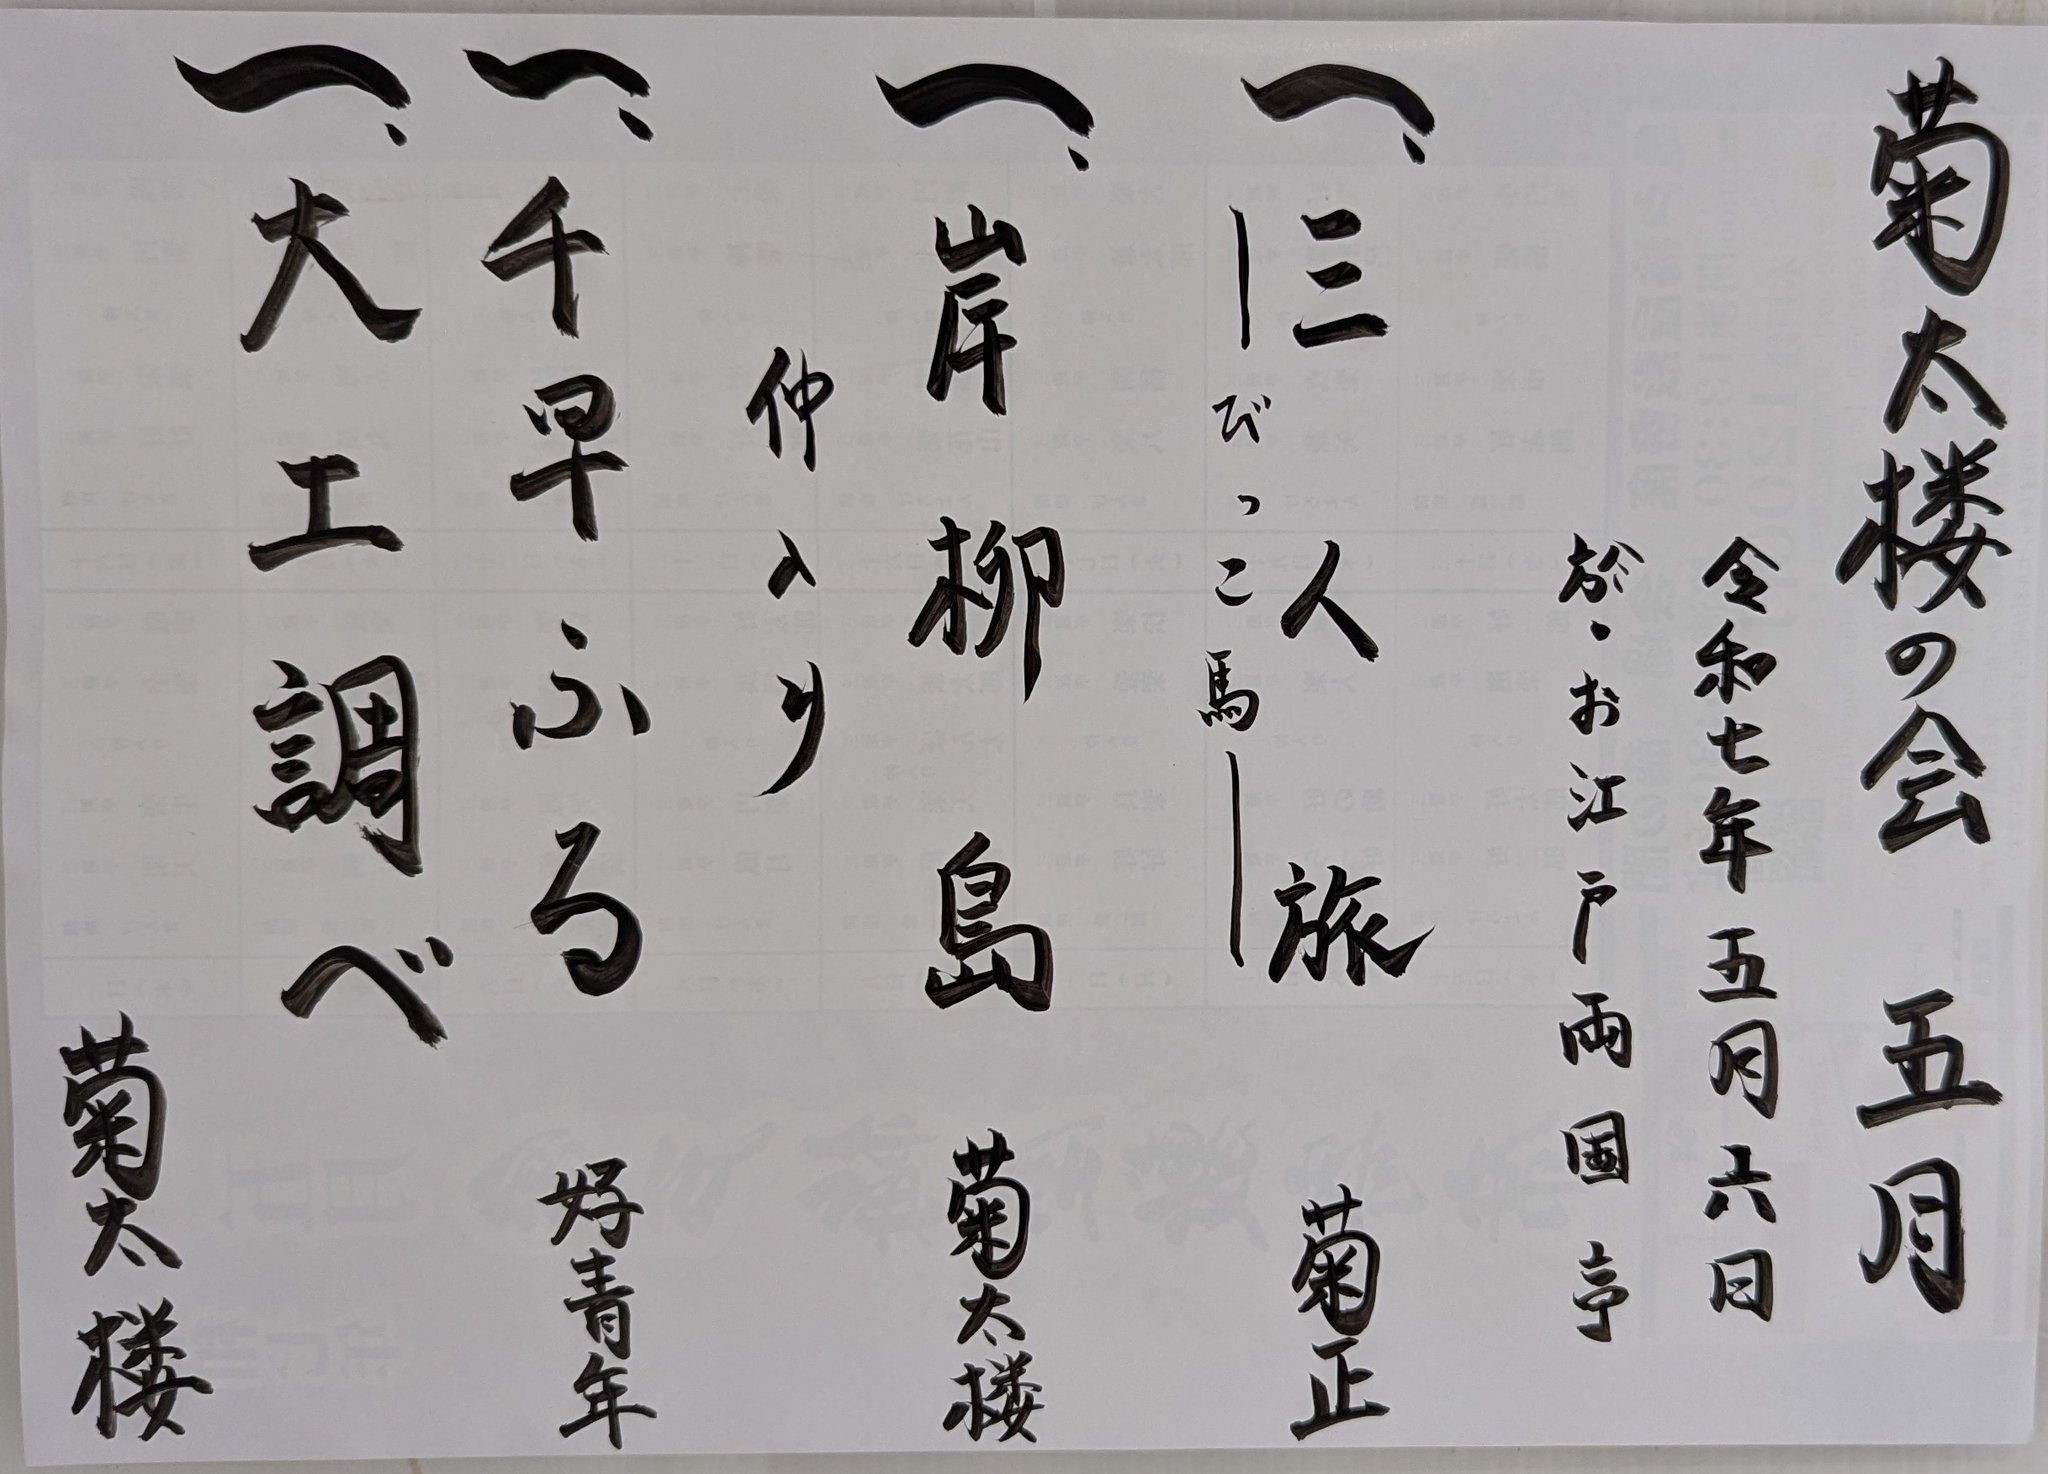 菊太楼の会 五月
令和七年五月六日
於・お江戸両国亭
一、三人旅 菊正
―びっこ馬―
一、岸柳島 菊太楼
仲入り
一、千早ふる 好青年
一、大工調べ 菊太楼